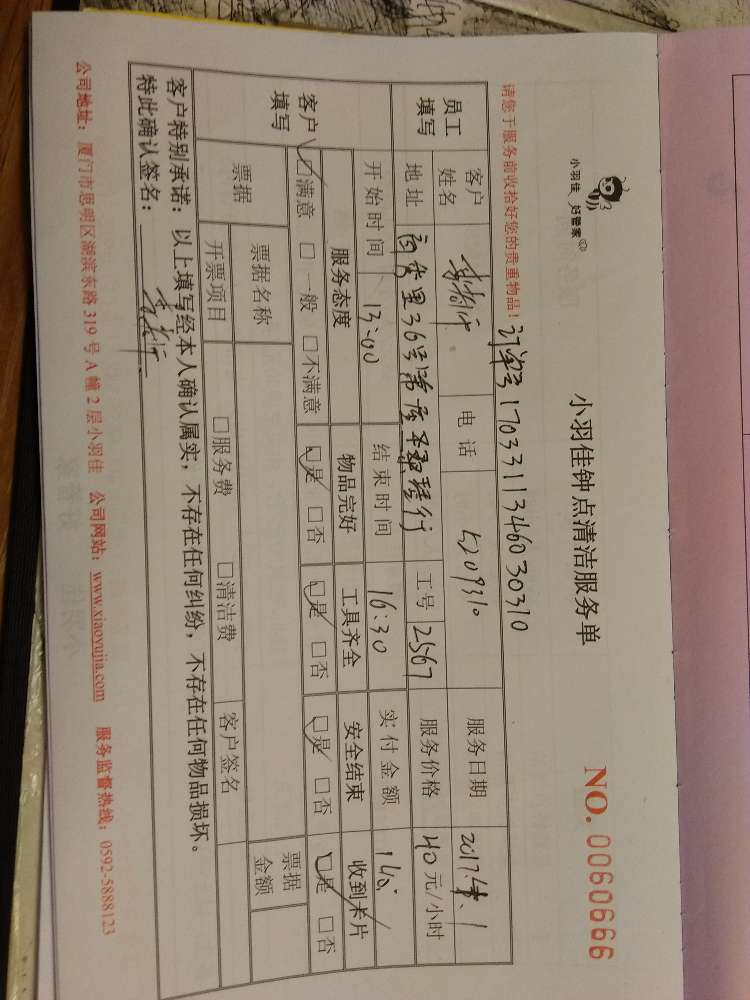 小羽佳 好管家
小羽佳钟点清洁服务单
NO. 0060666
请您于服务前收拾好您的贵重物品！
订单号 1703311346030310
员工填写
客户姓名
电话 5209310
服务日期 2017.4.1
地址
里36号
工号 2567
服务价格 40元/小时
开始时间 13:00
结束时间 16:30
实付金额 140.
客户填写
服务态度 物品完好 工具齐全 安全结束 收到卡片
☑满意 □一般 □不满意 ☑是 □否 ☑是 □否 ☑是 □否 ☑是 □否
票据
票据名称
票据金额
开票项目 □服务费 □清洁费 客户签名
客户特别承诺：以上填写经本人确认属实，不存在任何纠纷，不存在任何物品损坏。
特此确认签名：
公司地址：厦门市思明区湖滨东路 319 号 A 幢 2 层小羽佳 公司网站：www.xiaoyujia.com 服务监督热线：0592-5888123